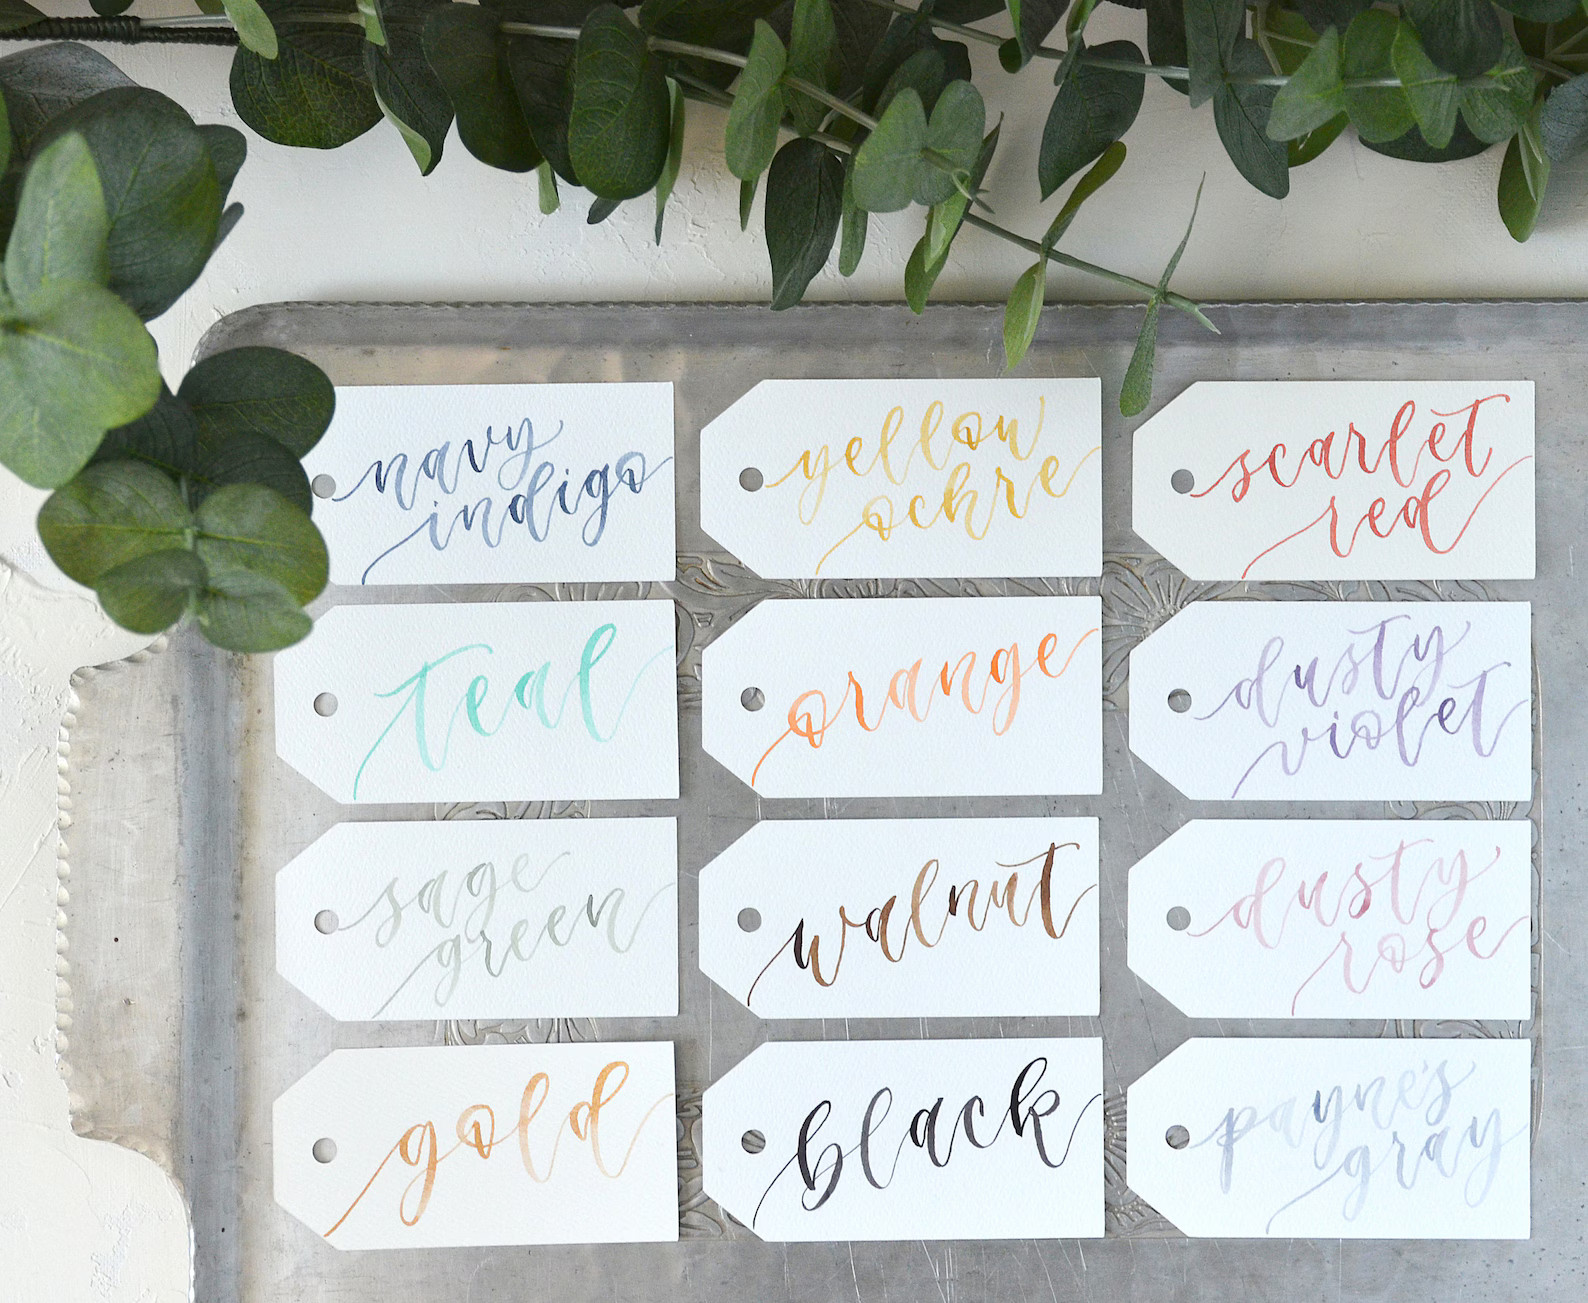 navy
indigo
yellow
ochre
scarlet
red
teal
orange
dusty
violet
sage
green
walnut
dusty
rose
gold
black
payne's
gray